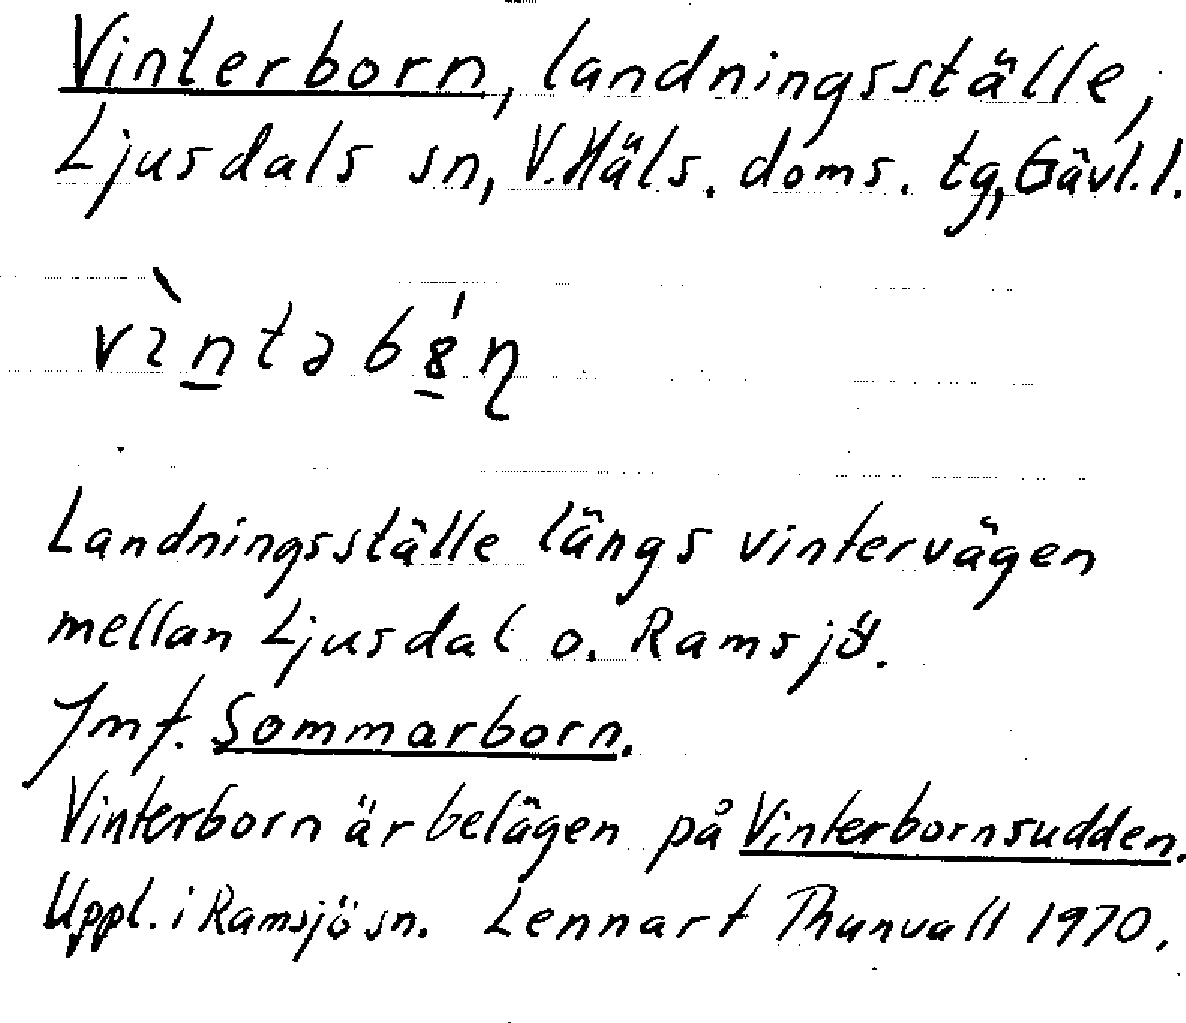 Vinterborn, landningsställe,
Ljusdals sn, V. Häls. doms. tg, Gävl. l.
vìntəb8́ɳ
Landningsställe längs vintervägen
mellan Ljusdal o. Ramsjö.
Jmf. Sommarborn.
Vinterborn är belägen på Vinterbornsudden.
Uppl. i Ramsjö sn. Lennart Thunvall 1970.